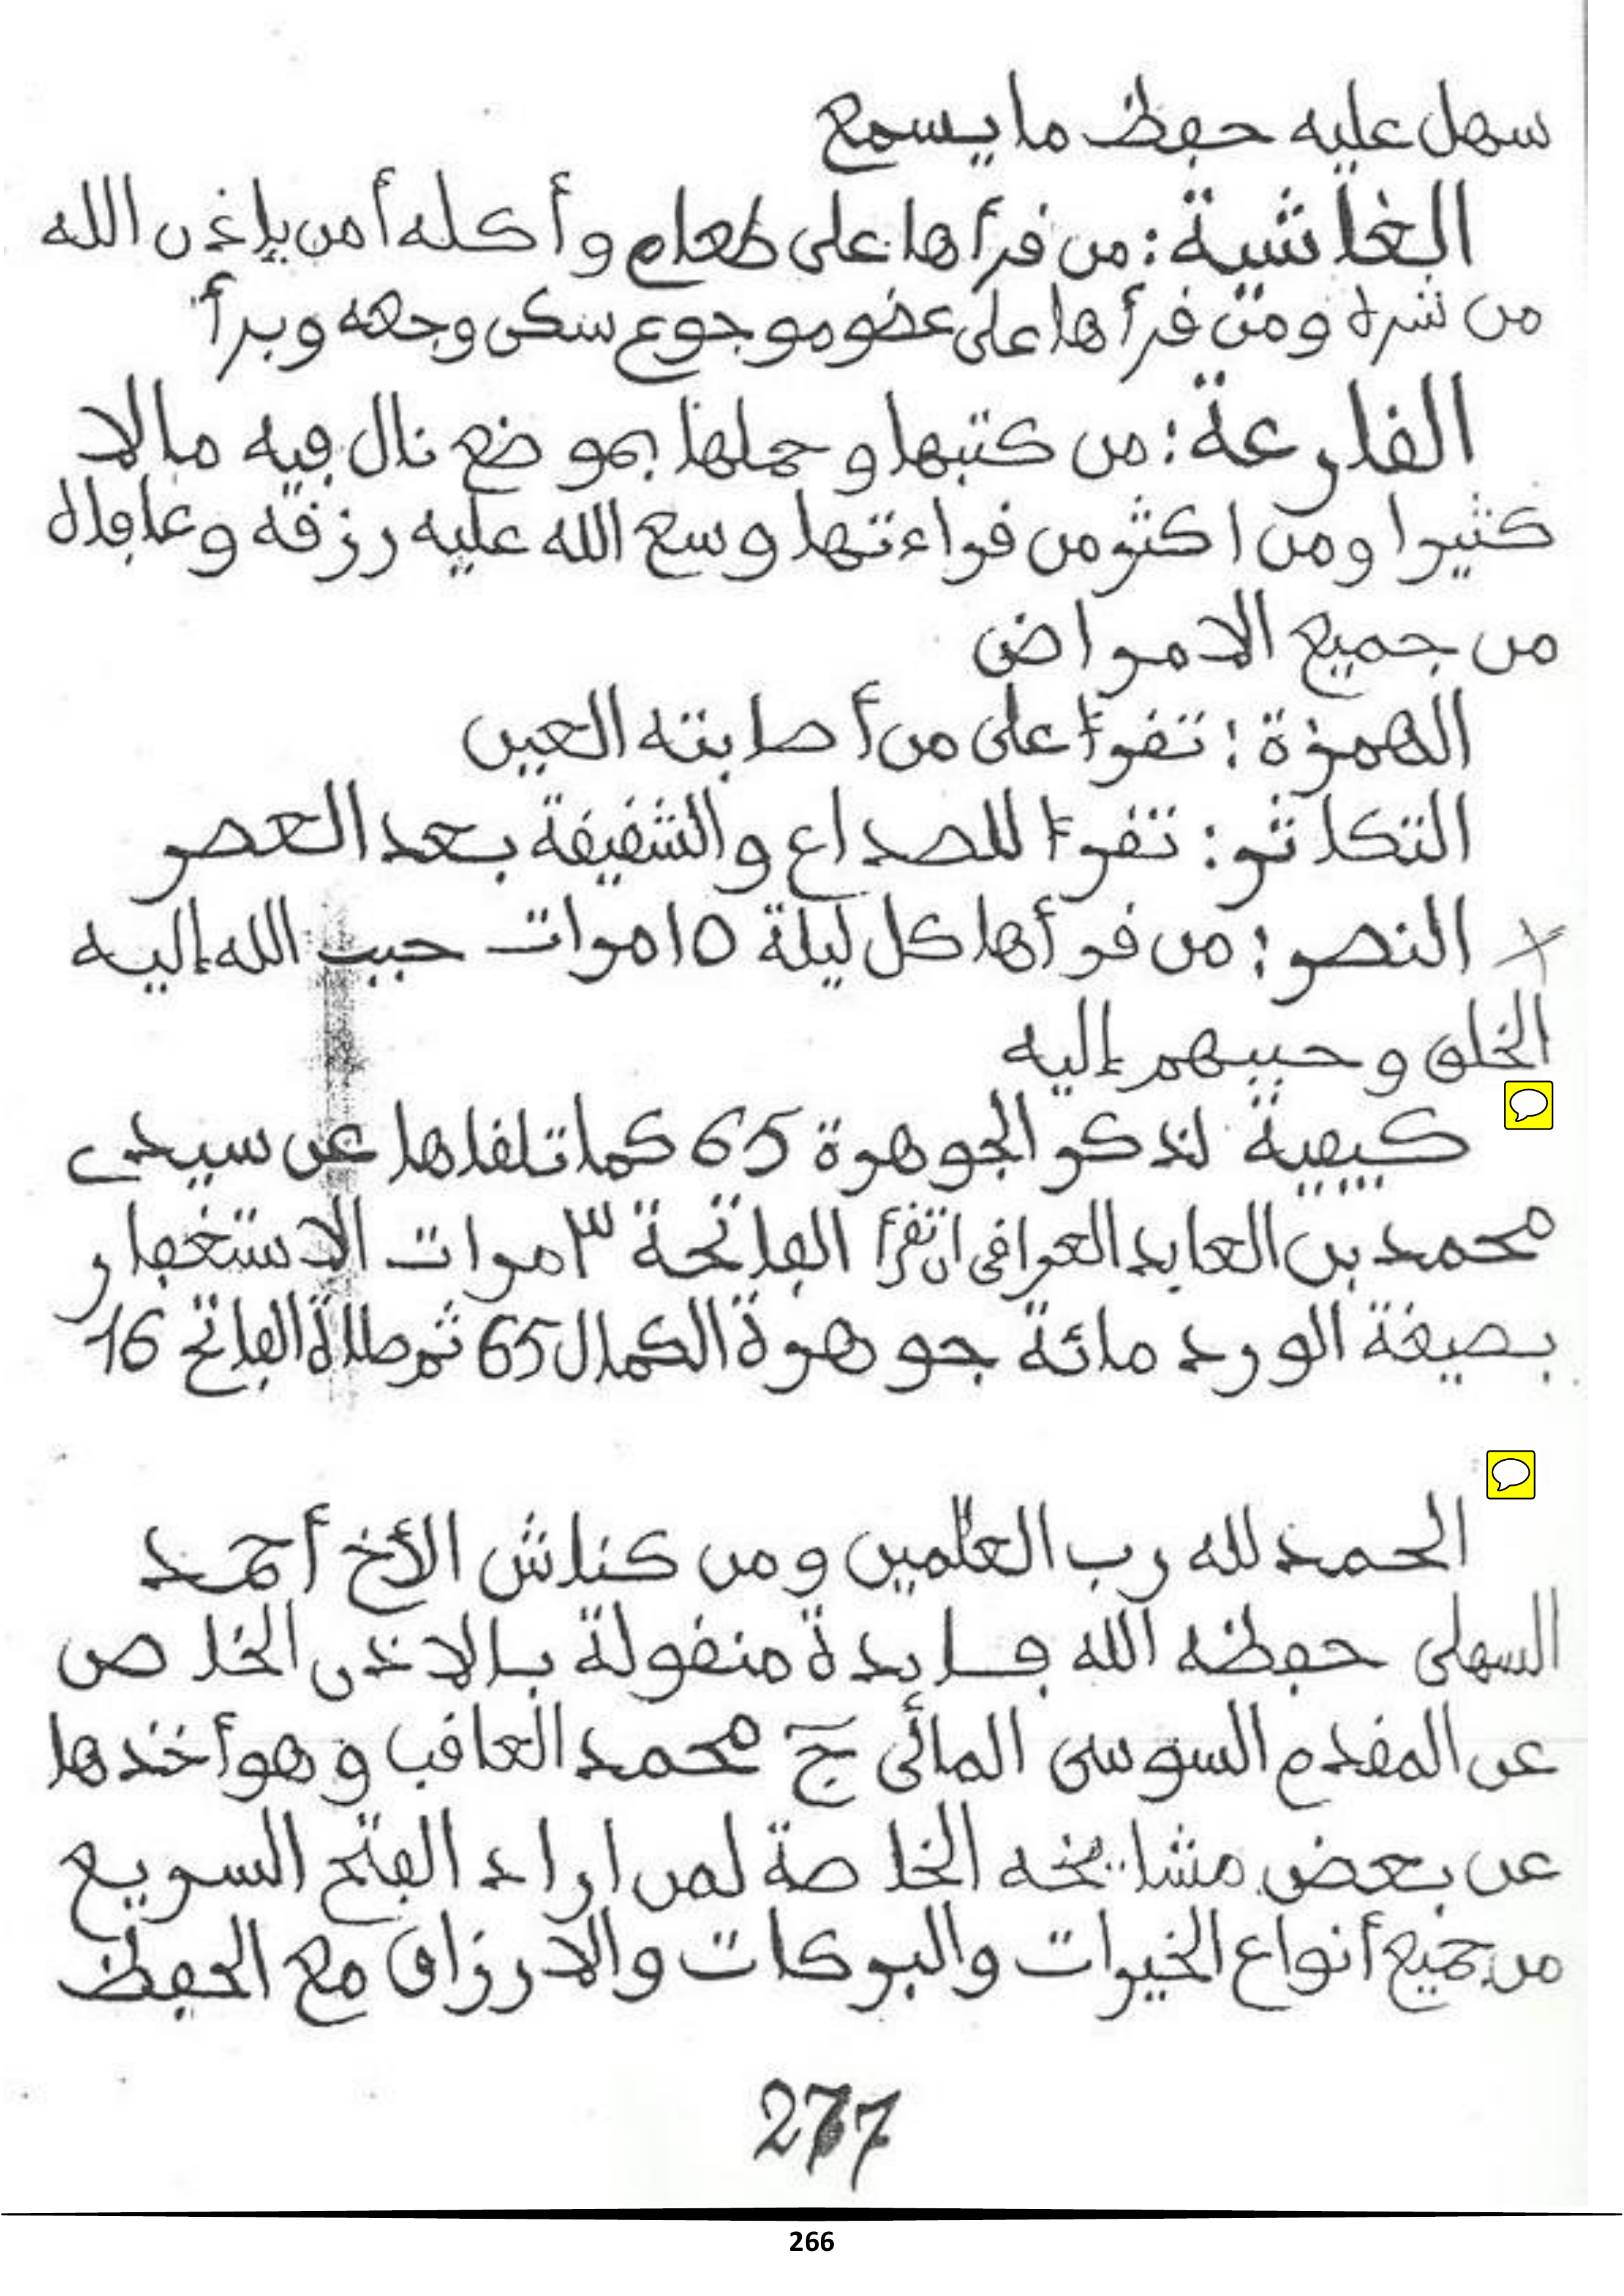 سهل عليه حفظ ما يسمع
الغاشية: من قرأها على طعام وأكله أمن بإذن الله
من شره ومن قرأها على عضو موجوع سكن وجعه وبرأ
القارعة: من كتبها وحملها بموضع نال فيه مالا
كثيرا ومن اكثر من قراءتها وسع الله عليه رزقه وعافاه
من جميع الامراض
الهمزة: تقرأ على من أصابته العين
التكاثر: تقرأ للصداع والشقيقة بعد العصر
النصر: من قرأها كل ليلة 15 مرات حبب الله إليه
الخلق وحببهم إليه
كيفية لذكر الجوهرة 65 كما تلقاها عن سيدي
محمد بن العابد العراقي ان تقرأ الفاتحة ٣ مرات الاستغفار
بصيغة الورد مائة جوهرة الكمال 65 ثم صلاة الفاتح 16
الحمد لله رب العلمين ومن كناش الأخ أحمد
السهلي حفظه الله فايدة منقولة بالاذن الخاص
عن المقدم السوسي المائي ج محمد العاقب وهو أخذها
عن بعض مشايخه الخاصة لمن اراد الفتح السريع
من جميع أنواع الخيرات والبركات والارزاق مع الحفظ
277
266